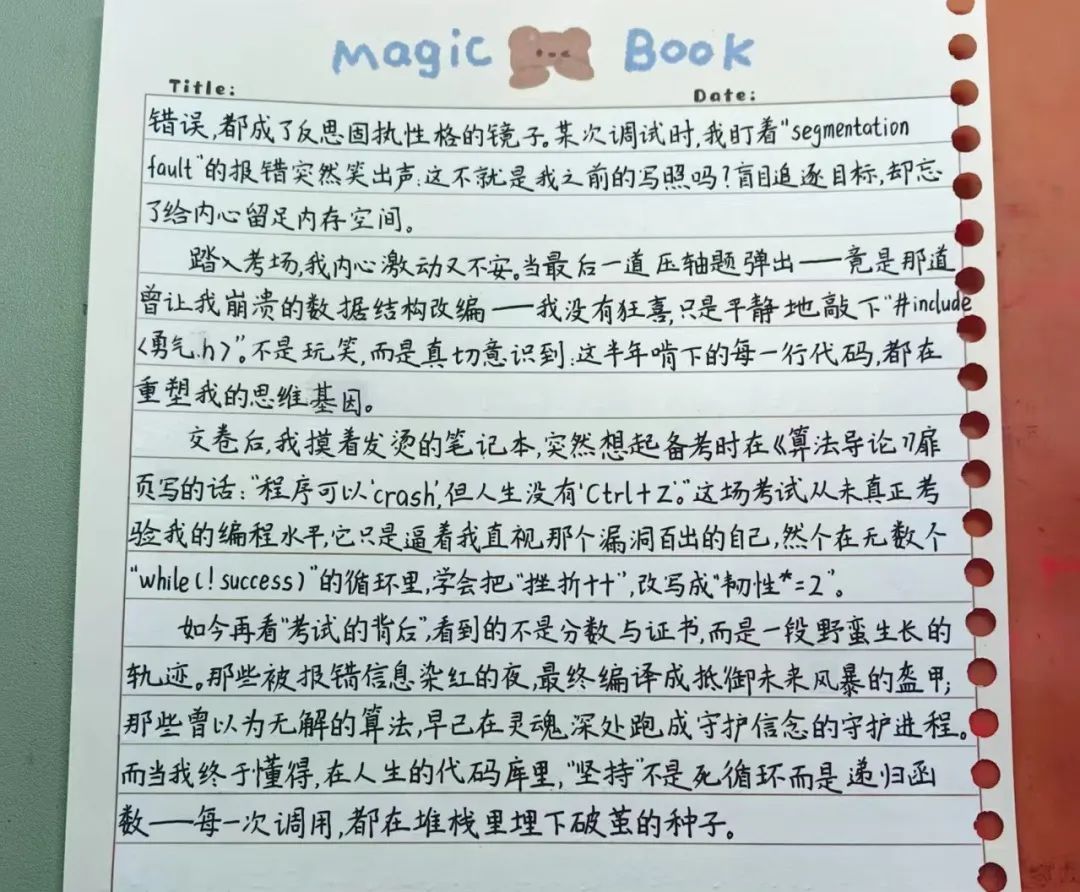 Magic Book
Title:
Date:
错误,都成了反思固执性格的镜子。某次调试时,我盯着"segmentation
fault"的报错突然笑出声:这不就是我之前的写照吗?盲目追逐目标,却忘
了给内心留足内存空间。
踏入考场,我内心激动又不安。当最后一道压轴题弹出——竟是那道
曾让我崩溃的数据结构改编——我没有狂喜,只是平静地敲下"#include
<勇气.h>"。不是玩笑,而是真切意识到:这半年啃下的每一行代码,都在
重塑我的思维基因。
交卷后,我摸着发烫的笔记本,突然想起备考时在《算法导论》扉
页写的话:"程序可以'crash',但人生没有'Ctrl+Z'。"这场考试从未真正考
验我的编程水平,它只是逼着我直视那个漏洞百出的自己,然个在无数个
"while(!success)"的循环里,学会把"挫折++",改写成"韧性*=2"。
如今再看"考试的背后",看到的不是分数与证书,而是一段野蛮生长的
轨迹。那些被报错信息染红的夜,最终编译成抵御未来风暴的盔甲;
那些曾以为无解的算法,早已在灵魂深处跑成守护信念的守护进程。
而当我终于懂得,在人生的代码库里,"坚持"不是死循环而是递归函
数——每一次调用,都在堆栈里埋下破茧的种子。